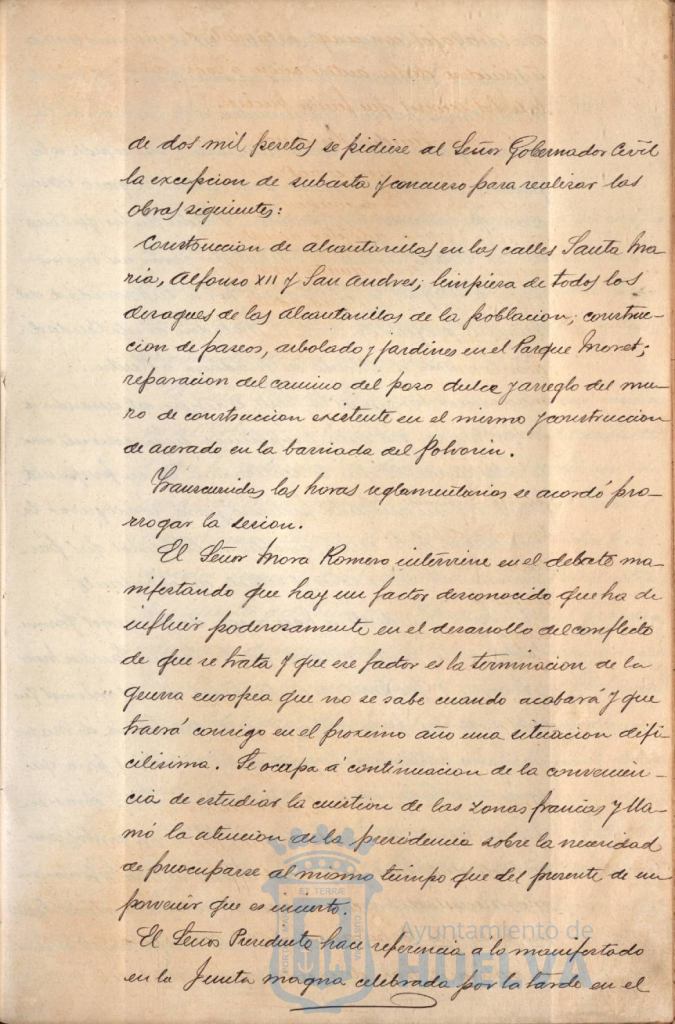 de dos mil pesetas se pidiese al Señor Gobernador Civil
la excepcion de subasta y concurso para realizar las
obras siguientes:
Construccion de alcantarillas en las calles Santa Ma-
ria, Alfonso XII y San Andres; limpiera de todos los
desagues de las alcantarillas de la poblacion; construc-
cion de paseos, arbolado y jardines en el Parque Moret;
reparacion del camino del poso dulce y arreglo del mu-
ro de construccion existente en el mismo y construccion
de acerado en la barriada del Polvorin.
Transcurridas las horas reglamentarias se acordó pro-
rrogar la sesion.
El Señor Mora Romero interviene en el debate ma-
nifestando que hay un factor desconocido que ha de
influir poderosamente en el desarrollo del conflicto
de que se trata y que ese factor es la terminacion de la
guerra europea que no se sabe cuando acabará y que
traerá consigo en el proximo año una situacion difi-
cilisima. Se ocupa á continuacion de la convenien-
cia de estudiar la cuestion de las zonas francas y lla-
mó la atencion de la presidencia sobre la necesidad
de preocuparse al mismo tiempo que del presente de un
porvenir que es incierto.
El Señor Presidente hace referencia a lo manifestado
en la Junta magna celebrada por la tarde en el
Ayuntamiento de
HUELVA